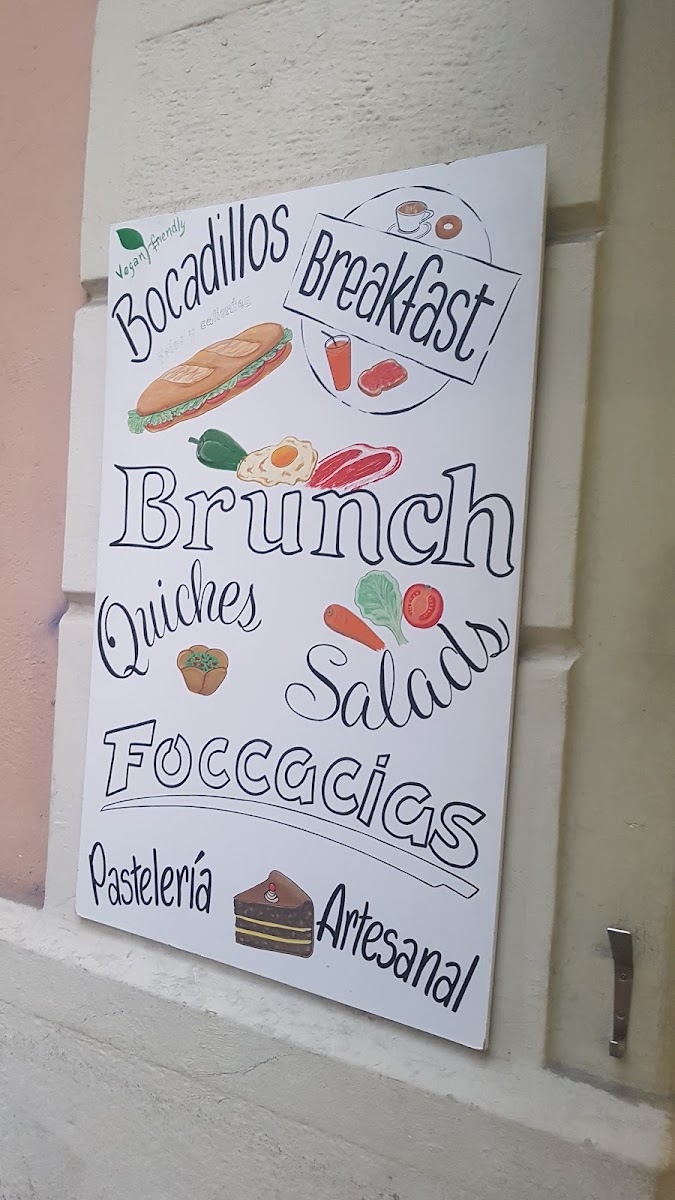 Vegan friendly
Bocadillos
y calientes
Breakfast
Brunch
Quiches
Salads
Foccacias
Pastelería Artesanal